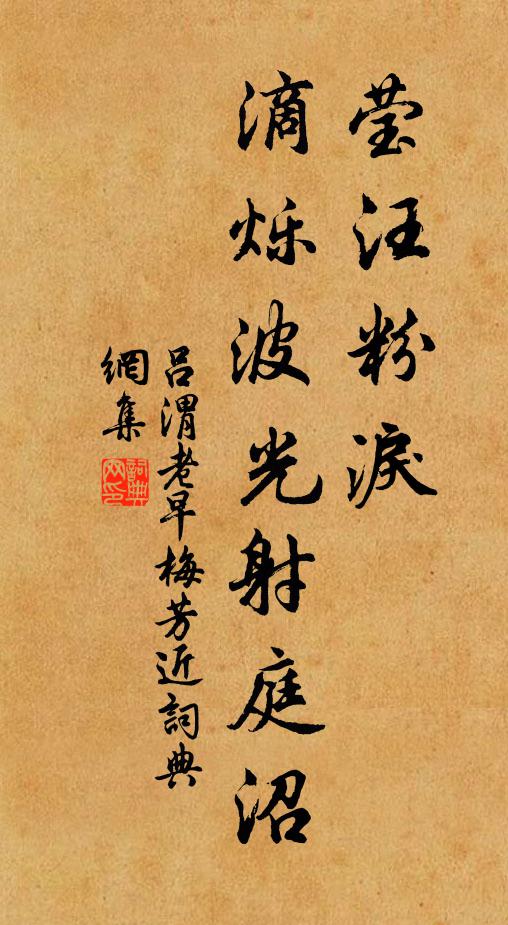 莹汪粉淚
滴烁波光射庭沼
吕渭老早梅芳近詞典
網集
詞典
网印